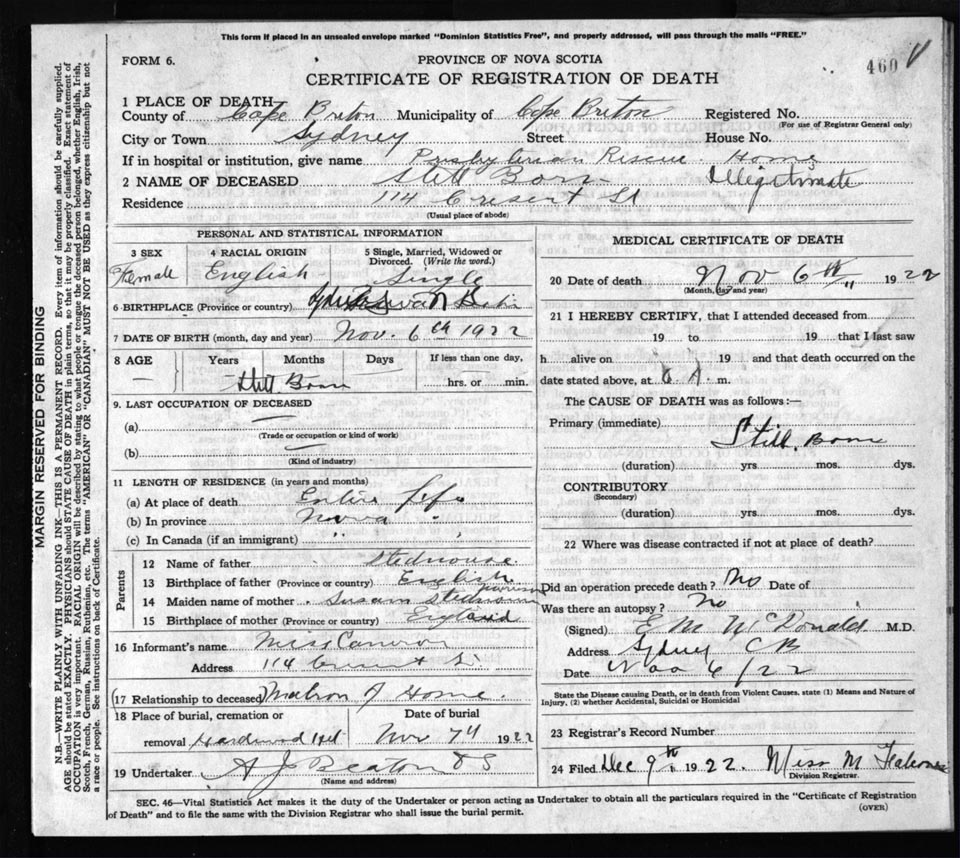 This form if placed in an unsealed envelope marked "Dominion Statistics Free", and properly addressed, will pass through the mails "FREE."
FORM 6.
PROVINCE OF NOVA SCOTIA
460
CERTIFICATE OF REGISTRATION OF DEATH
1 PLACE OF DEATH
County of Cape Breton Municipality of Cape Breton Registered No.
(For use of Registrar General only)
City or Town Sydney Street House No.
If in hospital or institution, give name Presbyterian Rescue Home
2 NAME OF DECEASED Still Born Illegitimate
Residence 114 Cresent St
(Usual place of abode)
PERSONAL AND STATISTICAL INFORMATION
3 SEX 4 RACIAL ORIGIN 5 Single, Married, Widowed or Divorced. (Write the word.)
Female English Single
6 BIRTHPLACE (Province or country)
7 DATE OF BIRTH (month, day and year) Nov. 6th 1922
8 AGE Years Months Days If less than one day,
Still Born hrs. or min.
9. LAST OCCUPATION OF DECEASED
(a)
(Trade or occupation or kind of work)
(b)
(Kind of industry)
11 LENGTH OF RESIDENCE (in years and months)
(a) At place of death Entire life
(b) In province Nova "
(c) In Canada (if an immigrant) " "
Parents
12 Name of father Stedmouse
13 Birthplace of father (Province or country) English
14 Maiden name of mother Susan
15 Birthplace of mother (Province or country) England
16 Informant's name Miss
Address 114 St
17 Relationship to deceased Matron of Home
18 Place of burial, cremation or removal Hardwood Hill
Date of burial Nov 7th 1922
19 Undertaker A J Beaton
(Name and address)
MEDICAL CERTIFICATE OF DEATH
20 Date of death Nov 6th 1922
(Month, day and year)
21 I HEREBY CERTIFY, that I attended deceased from
19 to 19 that I last saw
h alive on 19 and that death occurred on the
date stated above, at 6 A. m.
The CAUSE OF DEATH was as follows:—
Primary (immediate) Still Born
(duration) yrs mos. dys.
CONTRIBUTORY
(Secondary)
(duration) yrs. mos. dys.
22 Where was disease contracted if not at place of death?
Did an operation precede death? No Date of
Was there an autopsy? No
(Signed) E M McDonald M.D.
Address Sydney CB
Date Nov 6/22
State the Disease causing Death, or in death from Violent Causes, state (1) Means and Nature of Injury, (2) whether Accidental, Suicidal or Homicidal
23 Registrar's Record Number
24 Filed Dec 9th 1922. Miss M
Division Registrar.
SEC. 46—Vital Statistics Act makes it the duty of the Undertaker or person acting as Undertaker to obtain all the particulars required in the "Certificate of Registration
of Death" and to file the same with the Division Registrar who shall issue the burial permit.
(OVER)
MARGIN RESERVED FOR BINDING
N.B.—WRITE PLAINLY WITH UNFADING INK—THIS IS A PERMANENT RECORD. Every item of information should be carefully supplied.
AGE should be stated EXACTLY. PHYSICIANS should STATE CAUSE OF DEATH in plain terms, so that it may be properly classified. Exact statement of
OCCUPATION is very important. RACIAL ORIGIN will be described by stating to what people or tongue the deceased person belonged, whether English, Irish,
Scotch, French, German, Russian, Ruthenian, etc. The terms "AMERICAN" or "CANADIAN" MUST NOT BE USED as they express citizenship but not
a race or people. See instructions on back of Certificate.